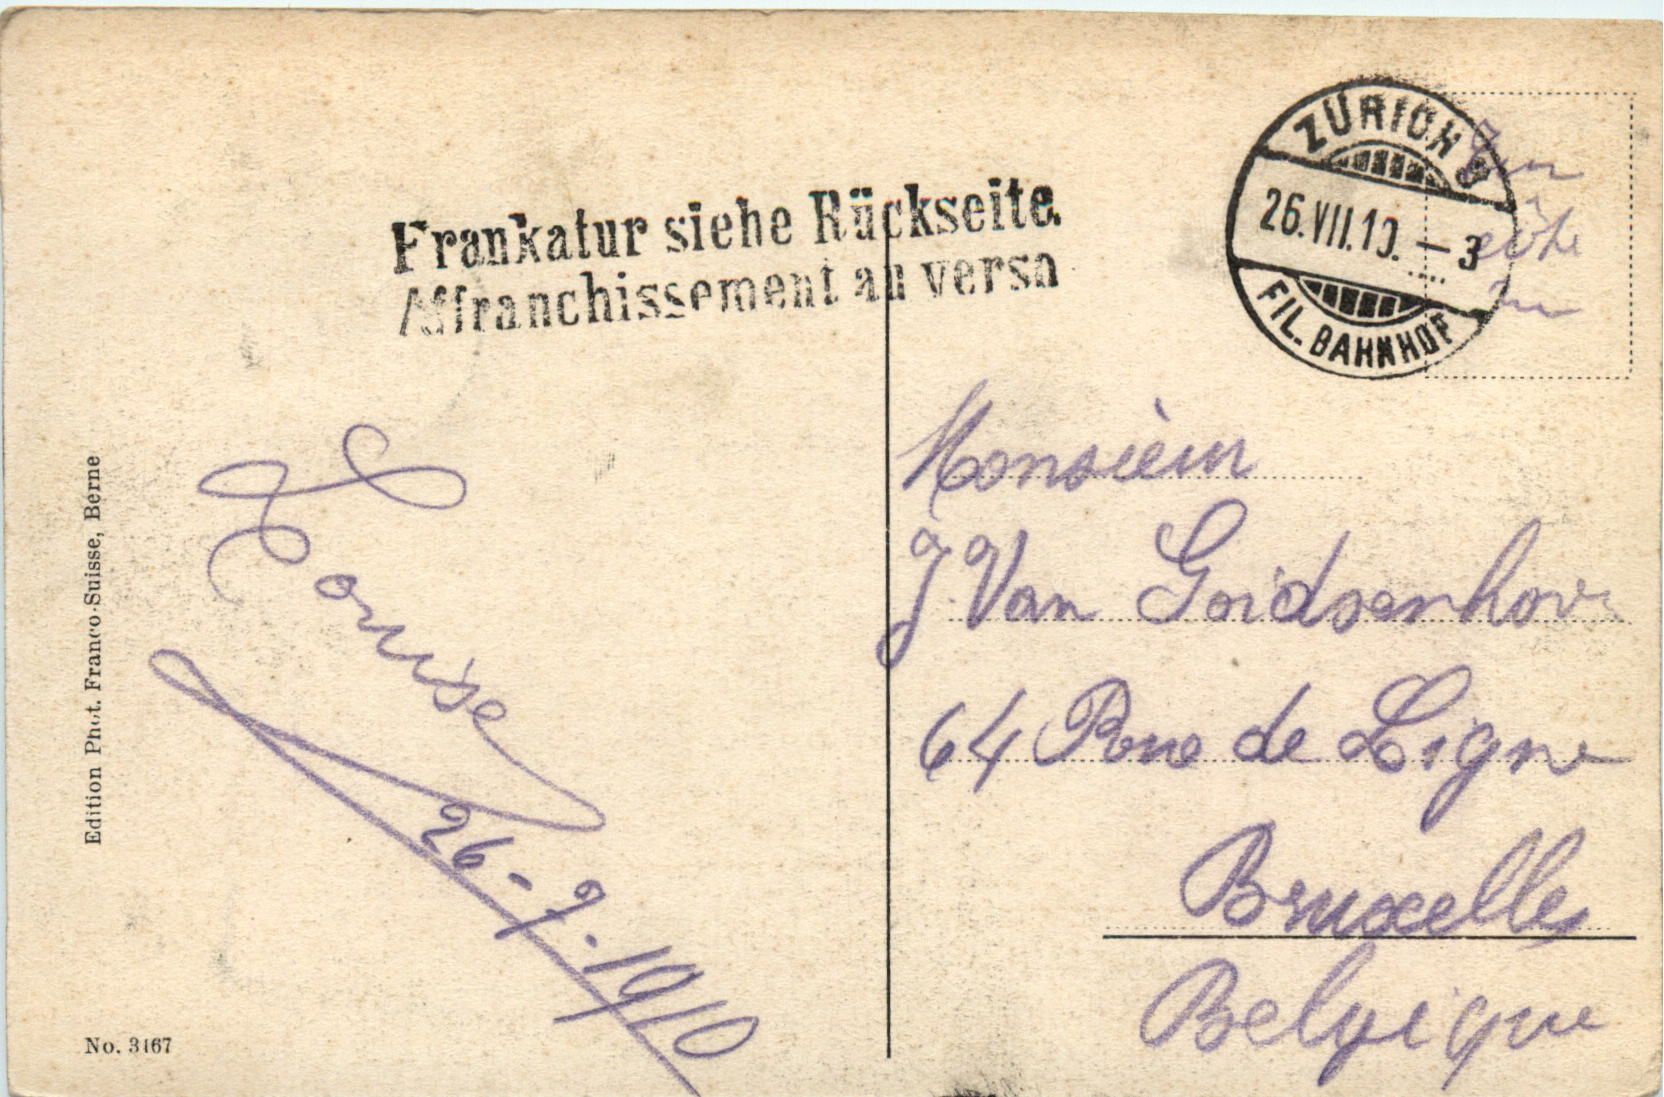 Frankatur siehe Rückseite.
Affranchissement au verso
ZÜRICH
26.VII.10. — 3
FIL. BAHNHOF
Monsieur
J. Van Goidsenhove
64 Rue de Ligne
Bruxelles
Belgique
Louise
26-7-1910
Edition Phot. Franco-Suisse, Berne
No. 3167